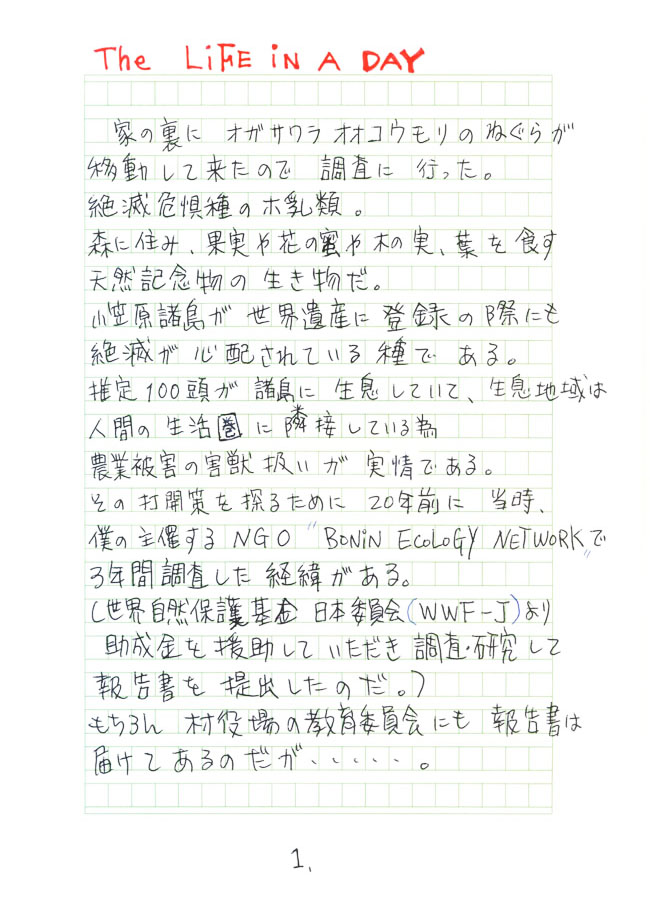 The LiFE iN A DAY
家の裏に オガサワラオオコウモリのねぐらが
移動して来たので 調査に 行った。
絶滅危惧種のホ乳類。
森に住み、果実や花の蜜や木の実、葉を食す
天然記念物の 生き物だ。
小笠原諸島が 世界遺産に 登録の際にも
絶滅が 心配されている 種で ある。
推定100頭が 諸島に 生息していて、生息地域は
人間の 生活圏 に 隣接している為
農業被害の害獣 扱いが 実情である。
その打開策を探るために 20年前に 当時、
僕の主催する NGO "BONiN ECOLOGY NETWORK"で
3年間調査した 経緯がある。
(世界自然保護基金 日本委員会(WWF-J)より
助成金を 援助して いただき 調査・研究して
報告書を 提出したのだ。)
もちろん 村役場の教育委員会にも 報告書は
届けてあるのだが・・・・・。
1.